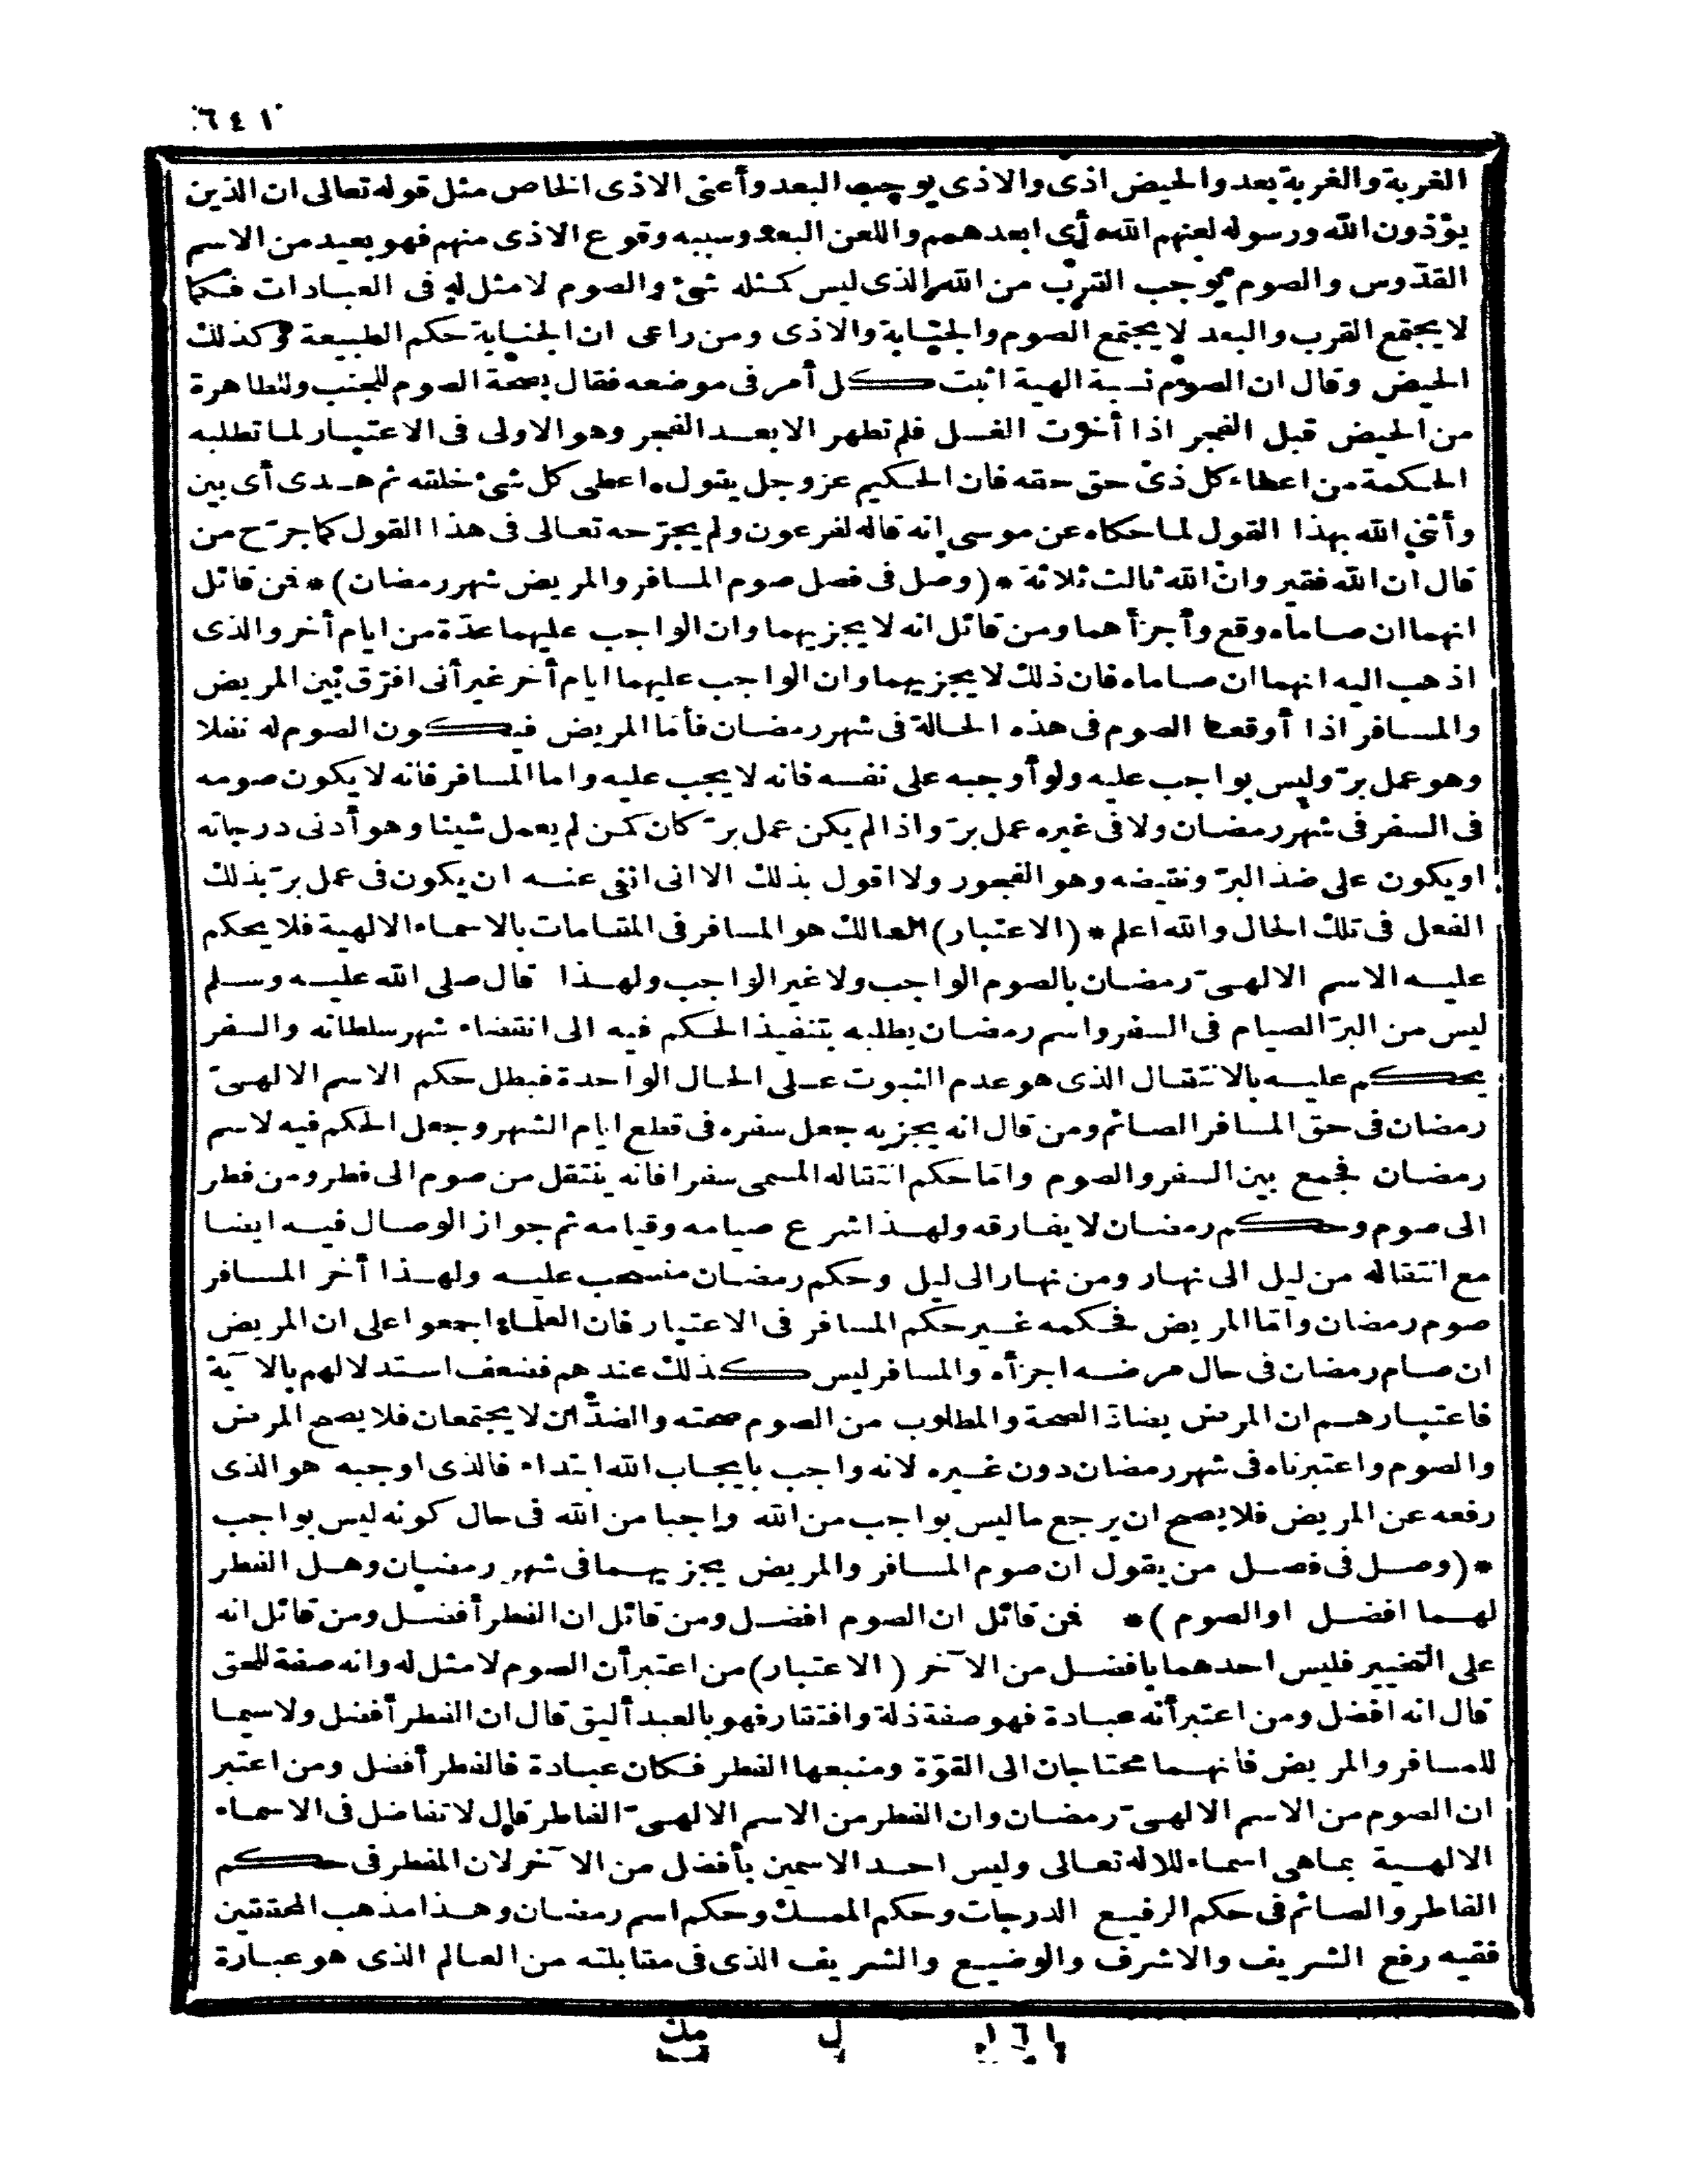 ٦٤١
الغربة والغربة بعد والحيض اذى والاذى يوجب البعد وأعنى الاذى الخاص مثل قوله تعالى ان الذين
يؤذون الله ورسوله لعنهم الله أى ابعدهم واللعن البعد وسببه وقوع الاذى منهم فهو بعيد من الاسم
القدّوس والصوم يوجب القرب من الله الذى ليس كمثله شئ والصوم لا مثل له فى العبادات فكما
لا يجتمع القرب والبعد لا يجتمع الصوم والجنابة والاذى ومن راعى ان الجنابة حكم الطبيعة وكذلك
الحيض وقال ان الصوم نسبة الهية اثبت كل أمر فى موضعه فقال بصحة الصوم للجنب وللطاهرة
من الحيض قبل الفجر اذا أخرت الغسل فلم تطهر الا بعد الفجر وهو الاولى فى الاعتبار لما تطلبه
الحكمة من اعطاء كل ذى حق حقه فان الحكيم عز وجل يقول اعطى كل شئ خلقه ثم هدى أى بين
وأثنى الله بهذا القول لما حكاه عن موسى انه قاله لفرعون ولم يجرّحه تعالى فى هذا القول كما جرّح من
قال ان الله فقير وان الله ثالث ثلاثة * (وصل فى فصل صوم المسافر والمريض شهر رمضان) * فمن قائل
انهما ان صاماه وقع وأجزأهما ومن قائل انه لا يجزيهما وان الواجب عليهما عدّة من ايام أخر والذى
اذهب اليه انهما ان صاماه فان ذلك لا يجزيهما وان الواجب عليهما ايام أخر غير أنى افرّق بين المريض
والمسافر اذا أوقعا الصوم فى هذه الحالة فى شهر رمضان فأمّا المريض فيكون الصوم له نفلا
وهو عمل برّ وليس بواجب عليه ولو أوجبه على نفسه فانه لا يجب عليه واما المسافر فانه لا يكون صومه
فى السفر فى شهر رمضان ولا فى غيره عمل برّ واذا لم يكن عمل برّ كان كمن لم يعمل شيئا وهو أدنى درجاته
او يكون على ضدّ البرّ ونقيضه وهو الفجور ولا اقول بذلك الا انى انفى عنه ان يكون فى عمل برّ بذلك
الفعل فى تلك الحال والله اعلم * (الاعتبار) السالك هو المسافر فى المقامات بالاسماء الالهية فلا يحكم
عليه الاسم الالهىّ رمضان بالصوم الواجب ولا غير الواجب ولهذا قال صلى الله عليه وسلم
ليس من البرّ الصيام فى السفر واسم رمضان يطلبه بتنفيذ الحكم فيه الى انقضاء شهر سلطانه والسفر
يحكم عليه بالانتقال الذى هو عدم الثبوت على الحال الواحدة فبطل حكم الاسم الالهىّ
رمضان فى حق المسافر الصائم ومن قال انه يجزيه جعل سفره فى قطع ايام الشهر وجعل الحكم فيه لاسم
رمضان فجمع بين السفر والصوم وامّا حكم انتقاله المسمى سفرا فانه ينتقل من صوم الى فطر ومن فطر
الى صوم وحكم رمضان لا يفارقه ولهذا شرع صيامه وقيامه ثم جواز الوصال فيه ايضا
مع انتقاله من ليل الى نهار ومن نهار الى ليل وحكم رمضان منسحب عليه ولهذا أخر المسافر
صوم رمضان وامّا المريض فحكمه غير حكم المسافر فى الاعتبار فان العلماء اجمعوا على ان المريض
ان صام رمضان فى حال مرضه اجزأه والمسافر ليس كذلك عندهم فضعف استدلالهم بالاۤية
فاعتبارهم ان المرض يضادّ الصحة والمطلوب من الصوم صحته والضدّان لا يجتمعان فلا يصح المرض
والصوم واعتبرناه فى شهر رمضان دون غيره لانه واجب بايجاب الله ابتداء فالذى اوجبه هو الذى
رفعه عن المريض فلا يصح ان يرجع ما ليس بواجب من الله واجبا من الله فى حال كونه ليس بواجب
* (وصل فى فصل من يقول ان صوم المسافر والمريض يجزيهما فى شهر رمضان وهل الفطر
لهما افضل او الصوم) * فمن قائل ان الصوم افضل ومن قائل ان الفطر أفضل ومن قائل انه
على التخيير فليس احدهما بافضل من الاۤخر (الاعتبار) من اعتبر أن الصوم لا مثل له وانه صفة للحق
قال انه افضل ومن اعتبر أنه عبادة فهو صفة ذلة وافتقار فهو بالعبد أليق قال ان الفطر أفضل ولا سيما
للمسافر والمريض فانهما محتاجان الى القوّة ومنبعها الفطر فكان عبادة فالفطر أفضل ومن اعتبر
ان الصوم من الاسم الالهىّ رمضان وان الفطر من الاسم الالهىّ الفاطر قال لا تفاضل فى الاسماء
الالهية بما هى اسماء للاله تعالى وليس احد الاسمين بأفضل من الاۤخر لان المفطر فى حكم
الفاطر والصائم فى حكم الرفيع الدرجات وحكم الممسك وحكم اسم رمضان وهذا مذهب المحققين
ففيه رفع الشريف والاشرف والوضيع والشريف الذى فى مقابلته من العالم الذى هو عبارة
١٦١ ل مك